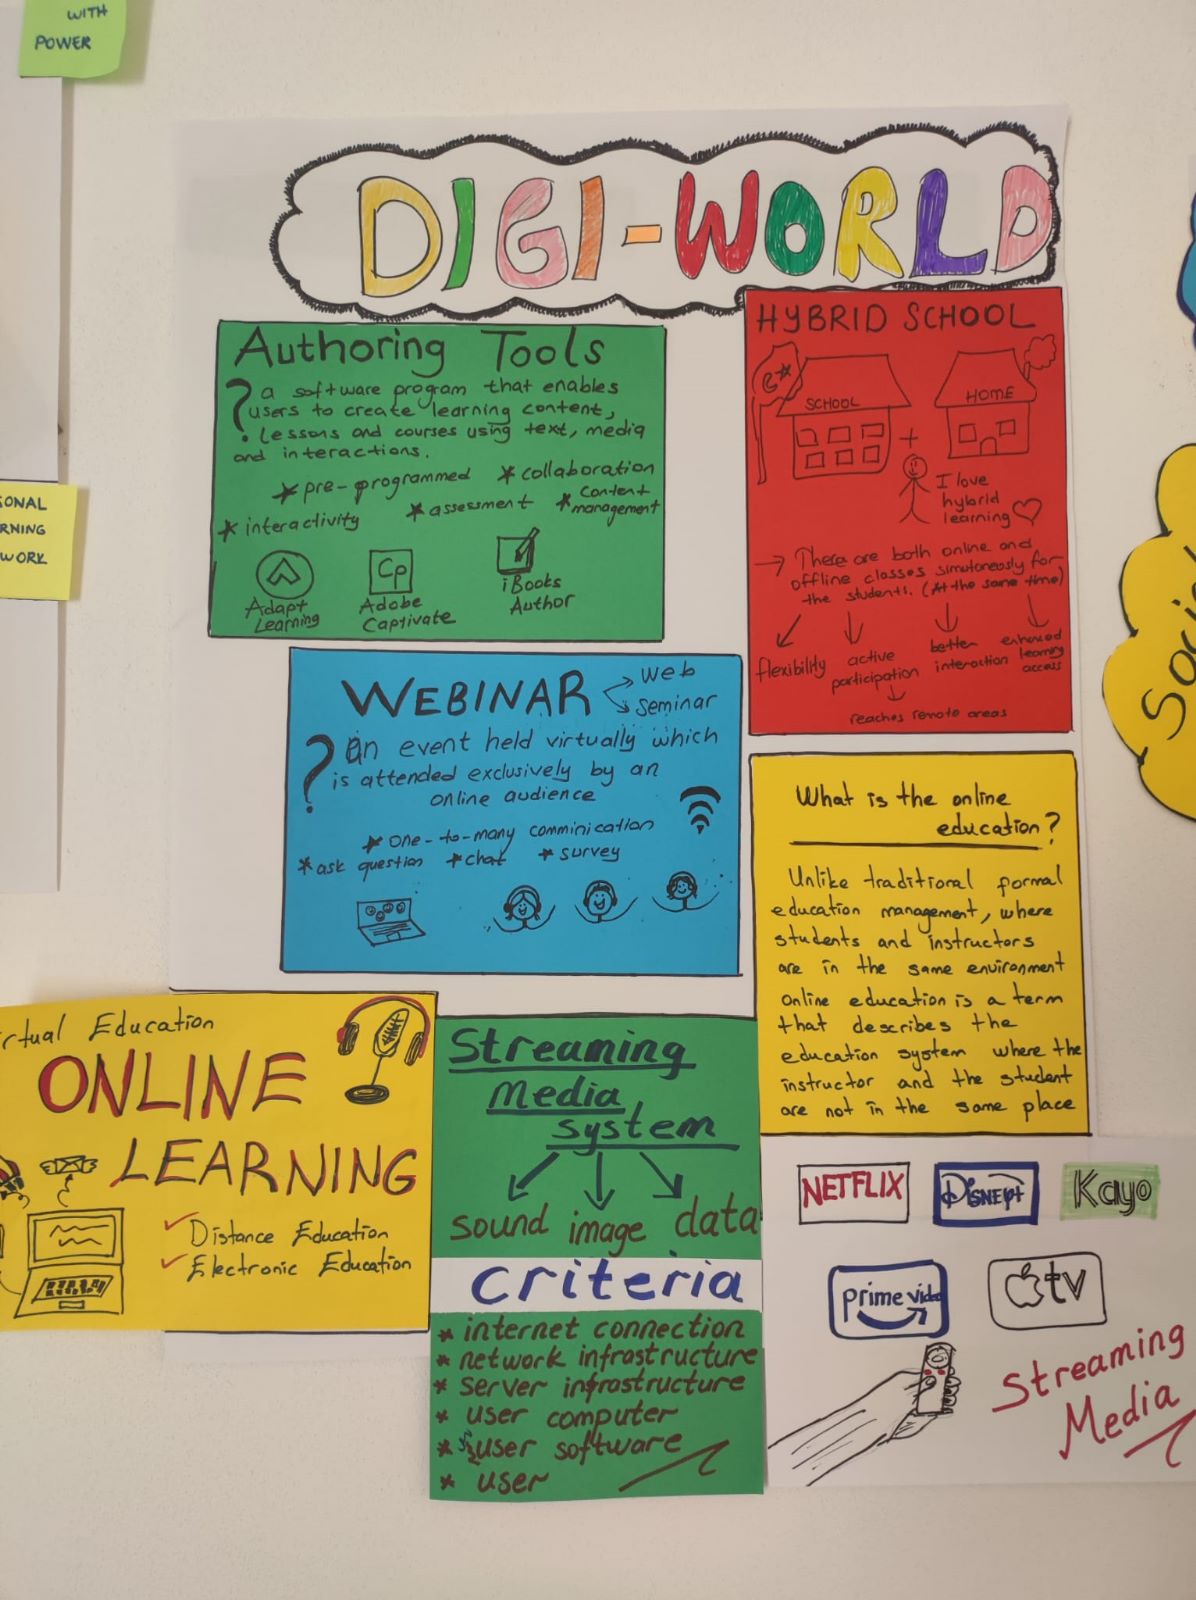 WITH
POWER
DIGI-WORLD
Authoring Tools
? a software program that enables
users to create learning content,
lessons and courses using text, media
and interactions.
* pre-programmed * collaboration
* interactivity * assessment * content
management
Adapt
Learning
Cp
Adobe
Captivate
iBooks
Author
HYBRID SCHOOL
SCHOOL
+
HOME
I love
hybrid
learning
→ There are both online and
offline classes simutaneously for
the students. (At the same time)
flexibility
active
participation
better
interaction
enhanced
learning
access
reaches remote areas
WEBINAR
web
seminar
? An event held virtually which
is attended exclusively by an
online audience
* one-to-many comminication
* ask question * chat * survey
What is the online
education?
Unlike traditional formal
education management, where
students and instructors
are in the same environment
online education is a term
that describes the
education system where the
instructor and the student
are not in the same place
rtual Education
ONLINE
LEARNING
✓ Distance Education
✓ Electronic Education
Streaming
Media
System
sound image data
criteria
* internet connection
* network infrastructure
* server infrostructure
* user computer
* user software
* user
NETFLIX
DISNEY+
Kayo
prime video
tv
Streaming
Media
SONAL
RNING
WORK
Social